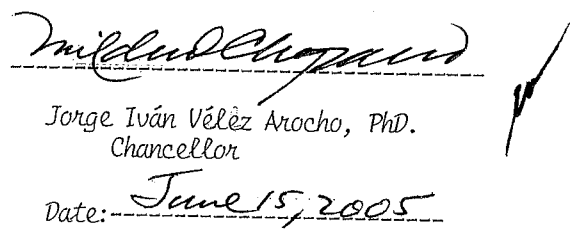 Mildred Chaparro
Jorge Iván Vélez Arocho, PhD.
Chancellor
Date: June 15, 2005